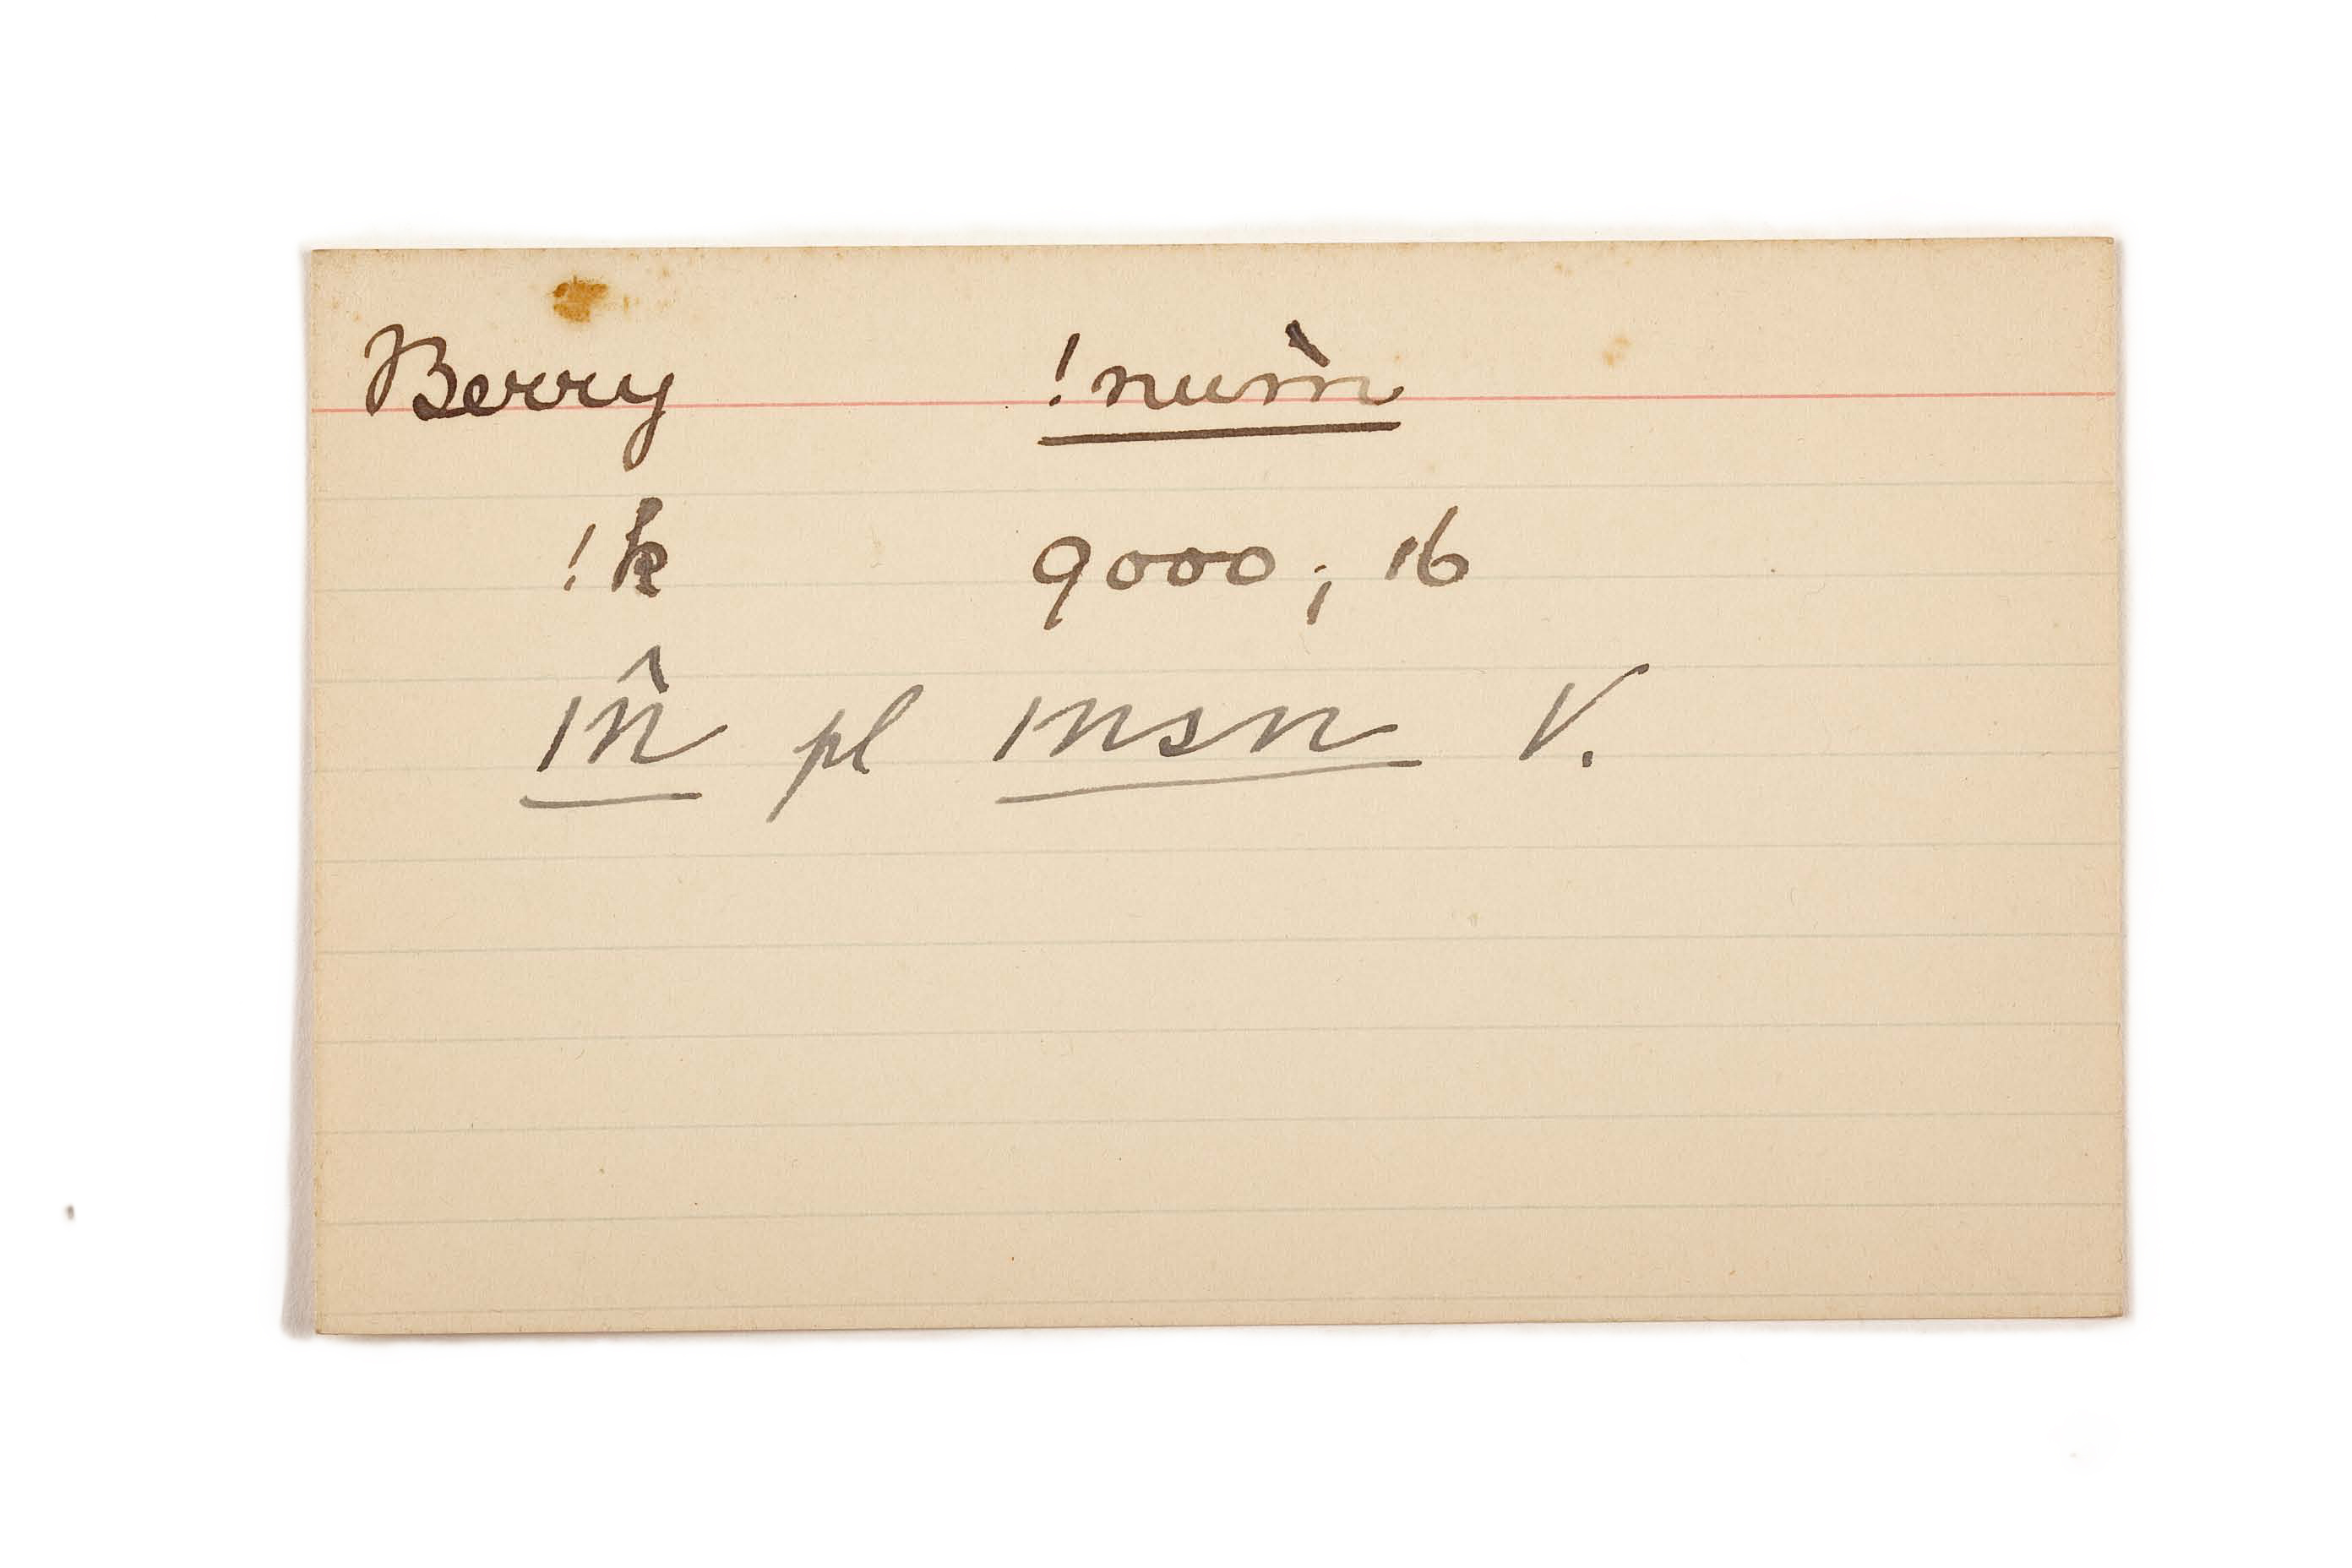 Berry !num̀
!k 9000; 16
/n̂ pl /nsn V.